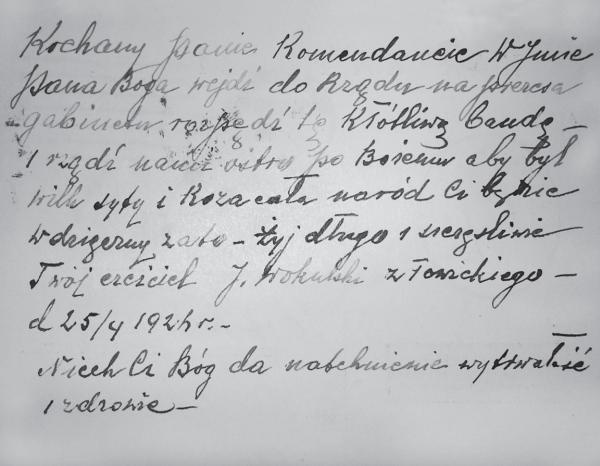 Kochany Panie Komendancie W Jmie
Pana Boga wejdź do Rządu na prezesa
gabinetu rozpędź tą Kłótliwą bandę –
i rządź nami ostro po Bożemu aby był
wilk syty i Koza cała naród Ci będzie
wdzięczny zato – Żyj długo i szczęśliwie
Twój czciciel J. Wokulski z Łowickiego –
d 25/4 192 r. –
Niech Ci Bóg da natchnienie wytrwałość
i zdrowie –